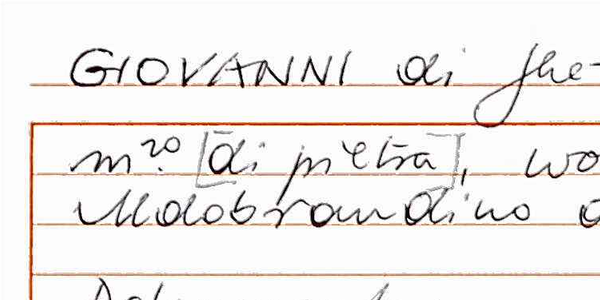 GIOVANNI di Ghe-
m.ro [di pietra], wo
Aldobrandino